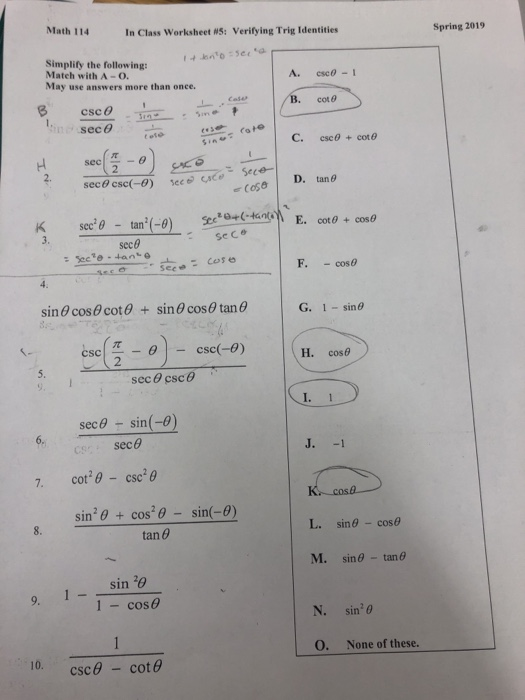 Math 114 In Class Worksheet #5: Verifying Trig Identities Spring 2019
Simplify the following:
Match with A – O.
May use answers more than once.
1 + tan²θ = sec²θ
B
1. cscθ / secθ
= cosθ/sinθ = cotθ
H
2. sec(π/2 − θ) / secθ csc(−θ)
cscθ / secθ cscθ = 1/secθ
= cosθ
K
3. sec²θ − tan²(−θ) / secθ
= sec²θ - tan²θ / secθ = 1/secθ = cosθ
4.
sinθ cosθ cotθ + sinθ cosθ tanθ
5. csc(π/2 − θ) − csc(−θ) / secθ cscθ
6. secθ − sin(−θ) / secθ
7. cot²θ − csc²θ
8. sin²θ + cos²θ − sin(−θ) / tanθ
9. 1 − sin²θ / 1 − cosθ
10. 1 / cscθ − cotθ
A. cscθ − 1
B. cotθ
C. cscθ + cotθ
D. tanθ
E. cotθ + cosθ
F. − cosθ
G. 1 − sinθ
H. cosθ
I. 1
J. −1
K. cosθ
L. sinθ − cosθ
M. sinθ − tanθ
N. sin²θ
O. None of these.